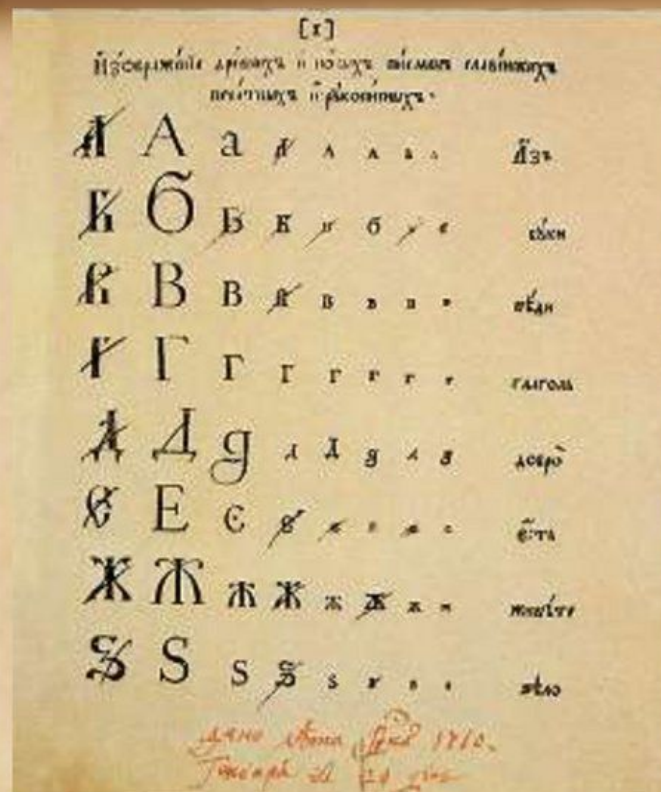 [1]
Изображенїе древнихъ и новыхъ писменъ славенскихъ
печатныхъ и рукописныхъ.
А А а А А А А А Азъ
Б Б Б Б б буки
В В В В В в в в вѣди
Г Г Г Г г г г г глаголь
Д Д д д Д д д д добро
Є Е є есть
Ж Ж Ж Ж ж ж ж ж живѣте
Ѕ Ѕ ѕ Ѕ ѕ ѕ ѕ ѕ ѕѣло
дано лѣта 1710.
Генваря 29